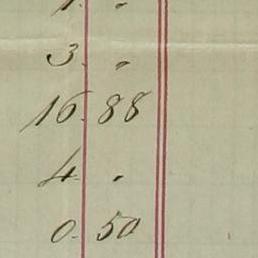 1. "
3. "
16. 88
4. "
0. 50